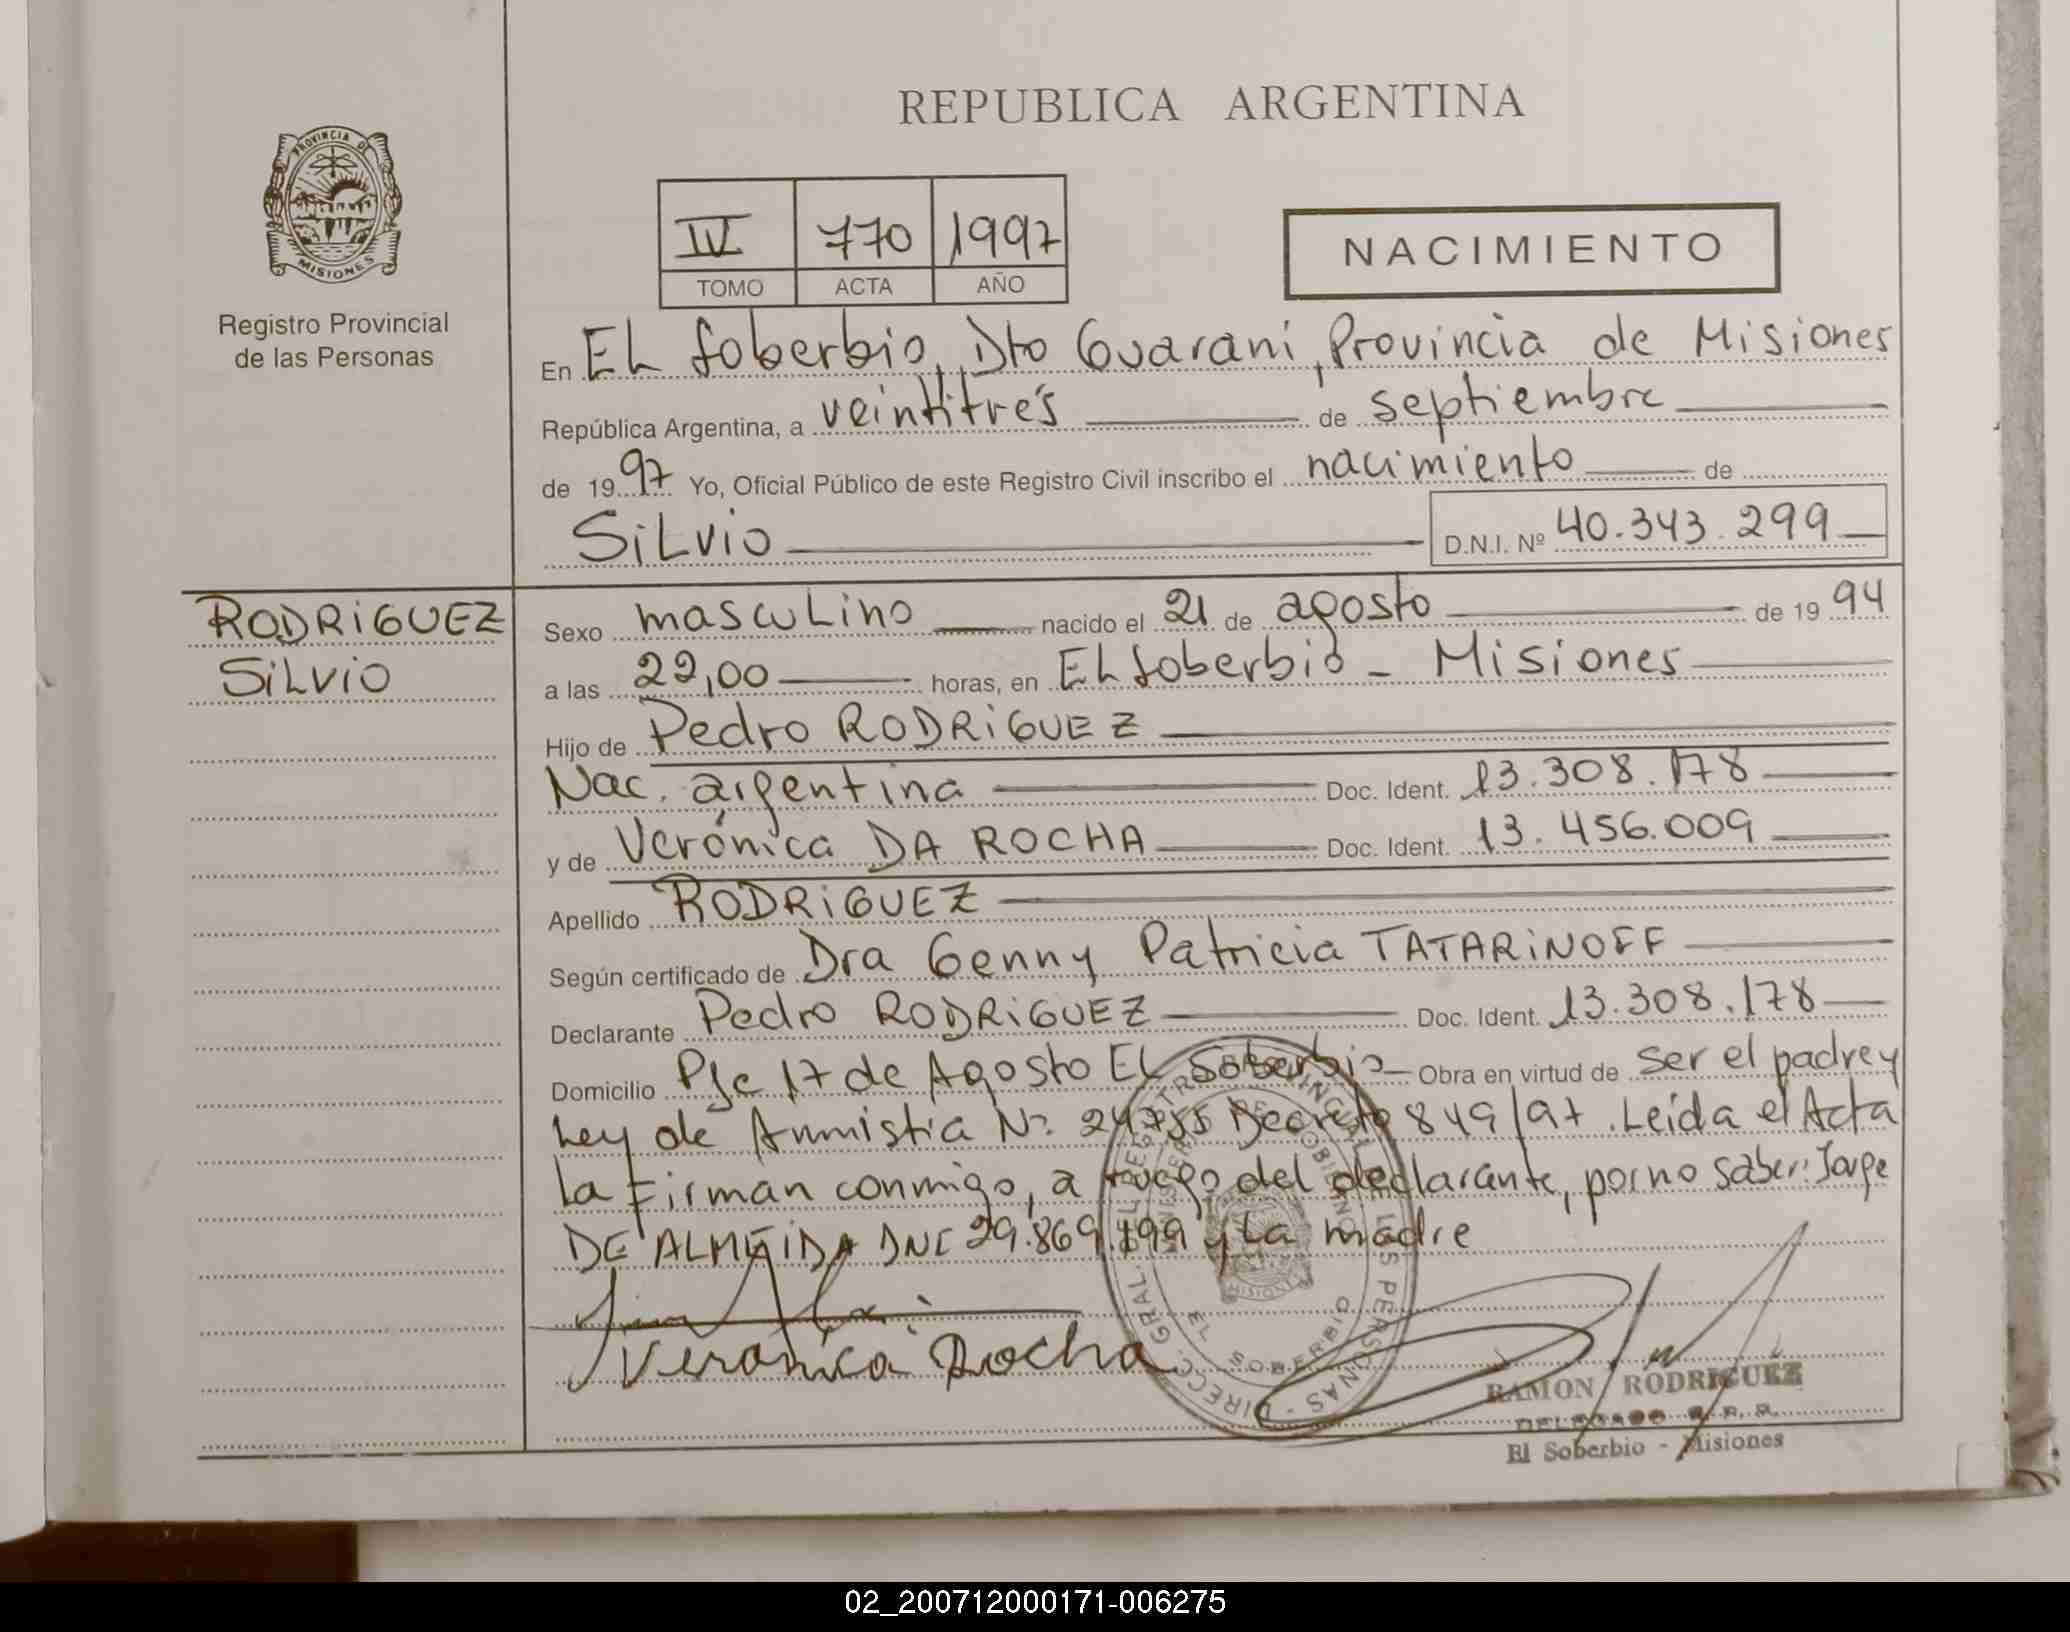 REPUBLICA ARGENTINA
PROVINCIA DE
MISIONES
Registro Provincial
de las Personas
IV 770 1997
TOMO ACTA AÑO
NACIMIENTO
En EL Soberbio, Dto Guaraní, Provincia de Misiones
República Argentina, a veintitrés de septiembre
de 1997 Yo, Oficial Público de este Registro Civil inscribo el nacimiento de
SiLvio D.N.I. Nº 40.343.299
RODRiGUEZ
SiLvio
Sexo mascuLino nacido el 21 de agosto de 1994
a las 22,00 horas, en EL Soberbio - Misiones
Hijo de Pedro RODRiGUEZ
Nac. argentina Doc. Ident. 13.308.178
y de Verónica DA ROCHA Doc. Ident. 13.456.009
Apellido RODRiGUEZ
Según certificado de Dra Genny Patricia TATARiNOFF
Declarante Pedro RODRiGUEZ Doc. Ident. 13.308.178
Domicilio Pje 17 de Agosto EL Soberbio Obra en virtud de ser el padre y
Ley de Anmistia Nº 24755 Decreto 849/97. Leida el Acta
La Firman conmigo, a ruego del declarante, por no saber: Jorge
DE ALMEiDA DNI 29.869.199 y La madre
Veronica Rocha
DIRECC. GRAL. DEL REGISTRO PROVINCIAL DE LAS PERSONAS
EL SOBERBIO
MISIONES
RAMON RODRIGUEZ
DELEGADO R. P. P.
El Soberbio - Misiones
02_200712000171-006275